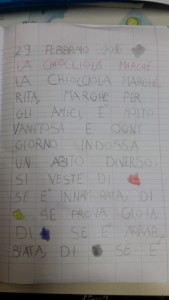 29 FEBBRAIO 2016
LA CHIOCCIOLA MARGHE
LA CHIOCCIOLA MARGHE
RITA, MARGHE PER
GLI AMICI È MOLTO
VANITOSA E OGNI
GIORNO INDOSSA
UN ABITO DIVERSO.
SI VESTE DI
SE È INNAMORATA, DI
SE PROVA GIOIA
DI SE È ARRAB
BIATA, DI SE È